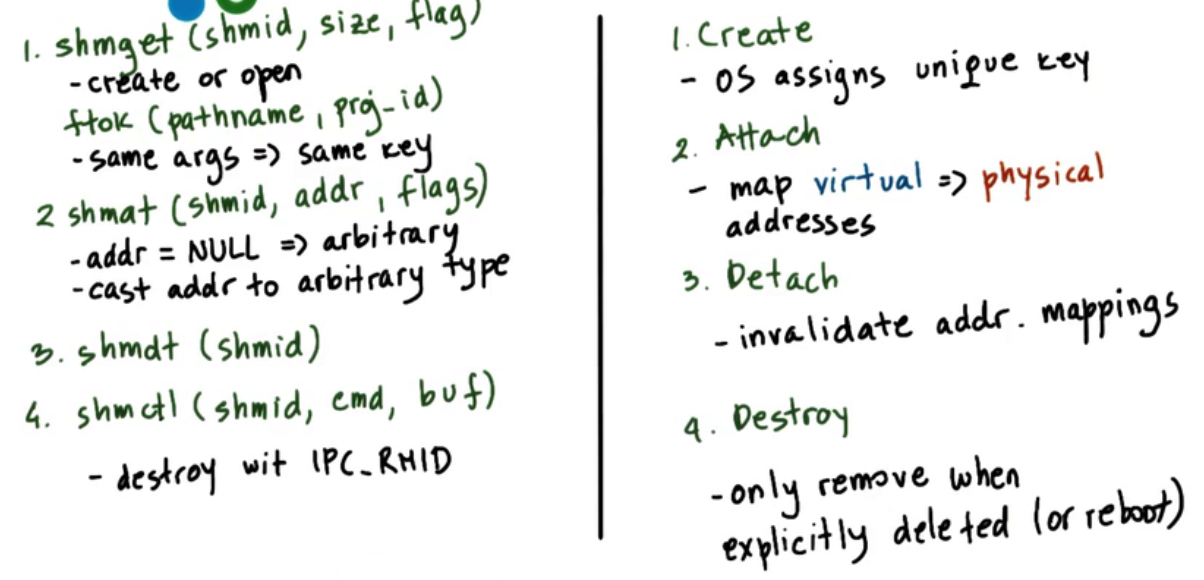 1. shmget (shmid, size, flag)
- create or open
ftok (pathname, proj-id)
- same args => same key
2 shmat (shmid, addr, flags)
- addr = NULL => arbitrary
- cast addr to arbitrary type
3. shmdt (shmid)
4. shmctl (shmid, cmd, buf)
- destroy wit IPC_RMID
1. Create
- OS assigns unique key
2. Attach
- map virtual => physical
addresses
3. Detach
- invalidate addr. mappings
4. Destroy
- only remove when
explicitly deleted (or reboot)